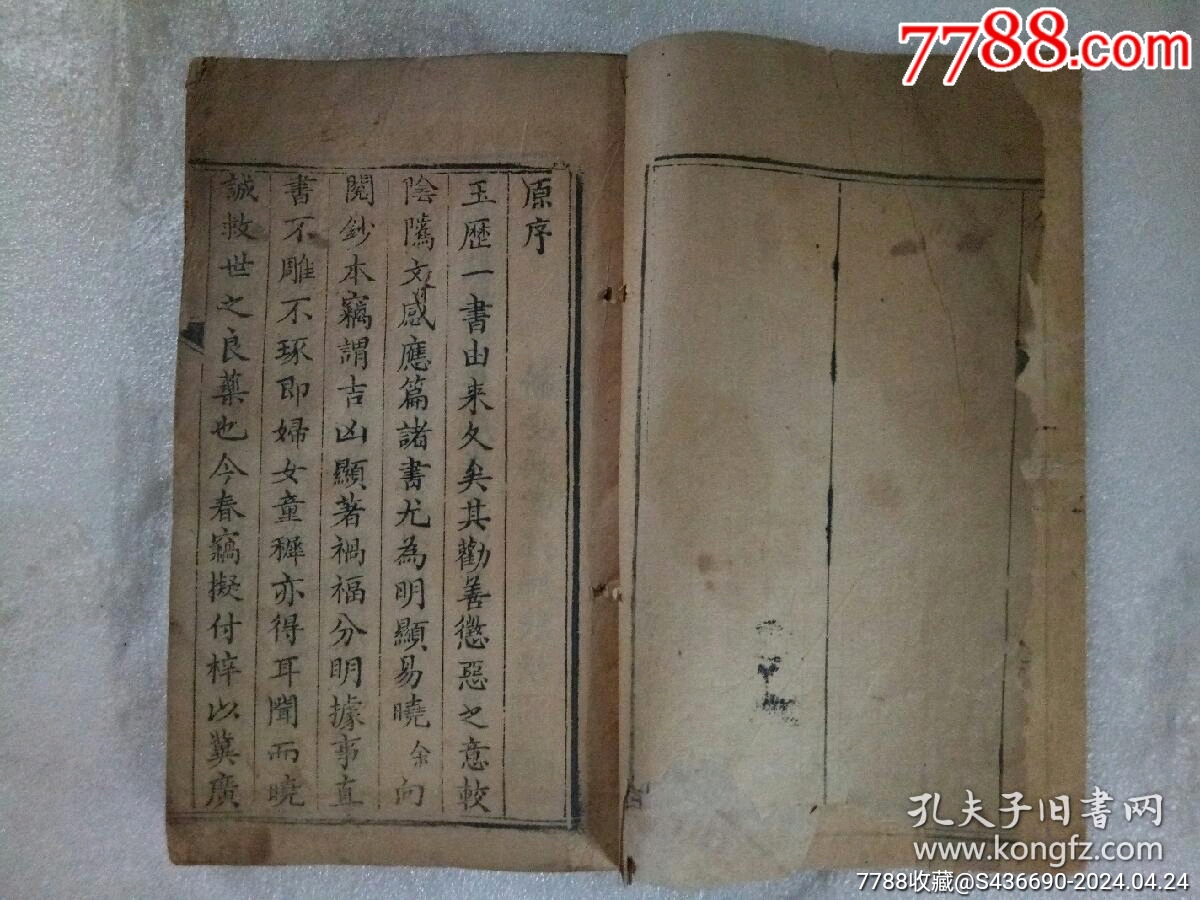 7788.com
原序
玉歷一書由来久矣其勸善懲惡之意較
陰騭文感應篇諸書尤為明顯易曉余向
閱鈔本竊謂吉凶顯著禍福分明據事直
書不雕不琢即婦女童穉亦得耳聞而曉
誠救世之良藥也今春竊擬付梓以冀廣
孔夫子旧书网
www.kongfz.com
7788收藏@S436690-2024.04.24